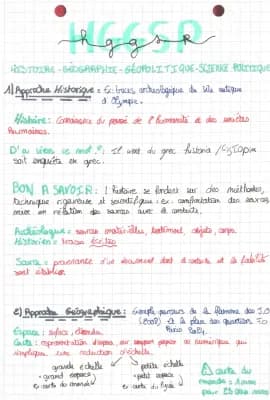 HGGSP
hggsp
HISTOIRE - GÉOGRAPHIE - GÉOPOLITIQUE - SCIENCE POLITIQUE
1) Approche Historique : Ex: traces archéologiques du site antique
d'Olympie.
Histoire : Connaissance du passé de l'humanité et des sociétés
humaines.
D'où vient ce mot ? : Il vient du grec historia /
soit enquête en grec.
BON A SAVOIR : L'histoire se fondent sur des méthodes,
technique rigoureuse et scientifique : ex. confrontation des sources,
mise en relation des sources avec le contexte.
Archéologue : sources matérielles, bâtiment, objets,
Historien : traces écrites
Source : provenance d'un document dont la nature et la fiabilité
sont établies.
2) Approche Géographique : Exemple parcours de la flamme des JO
Paris 2024.
Espace : surface, étendue.
Carte : représentation d'espace, sur support papier ou numérique qui
implique une réduction d'échelle.
grande échelle petite échelle
- grand espace - petit espace
ex: carte du monde ex: carte du lycée
⚠ carte du
monde : 1 cm
pour